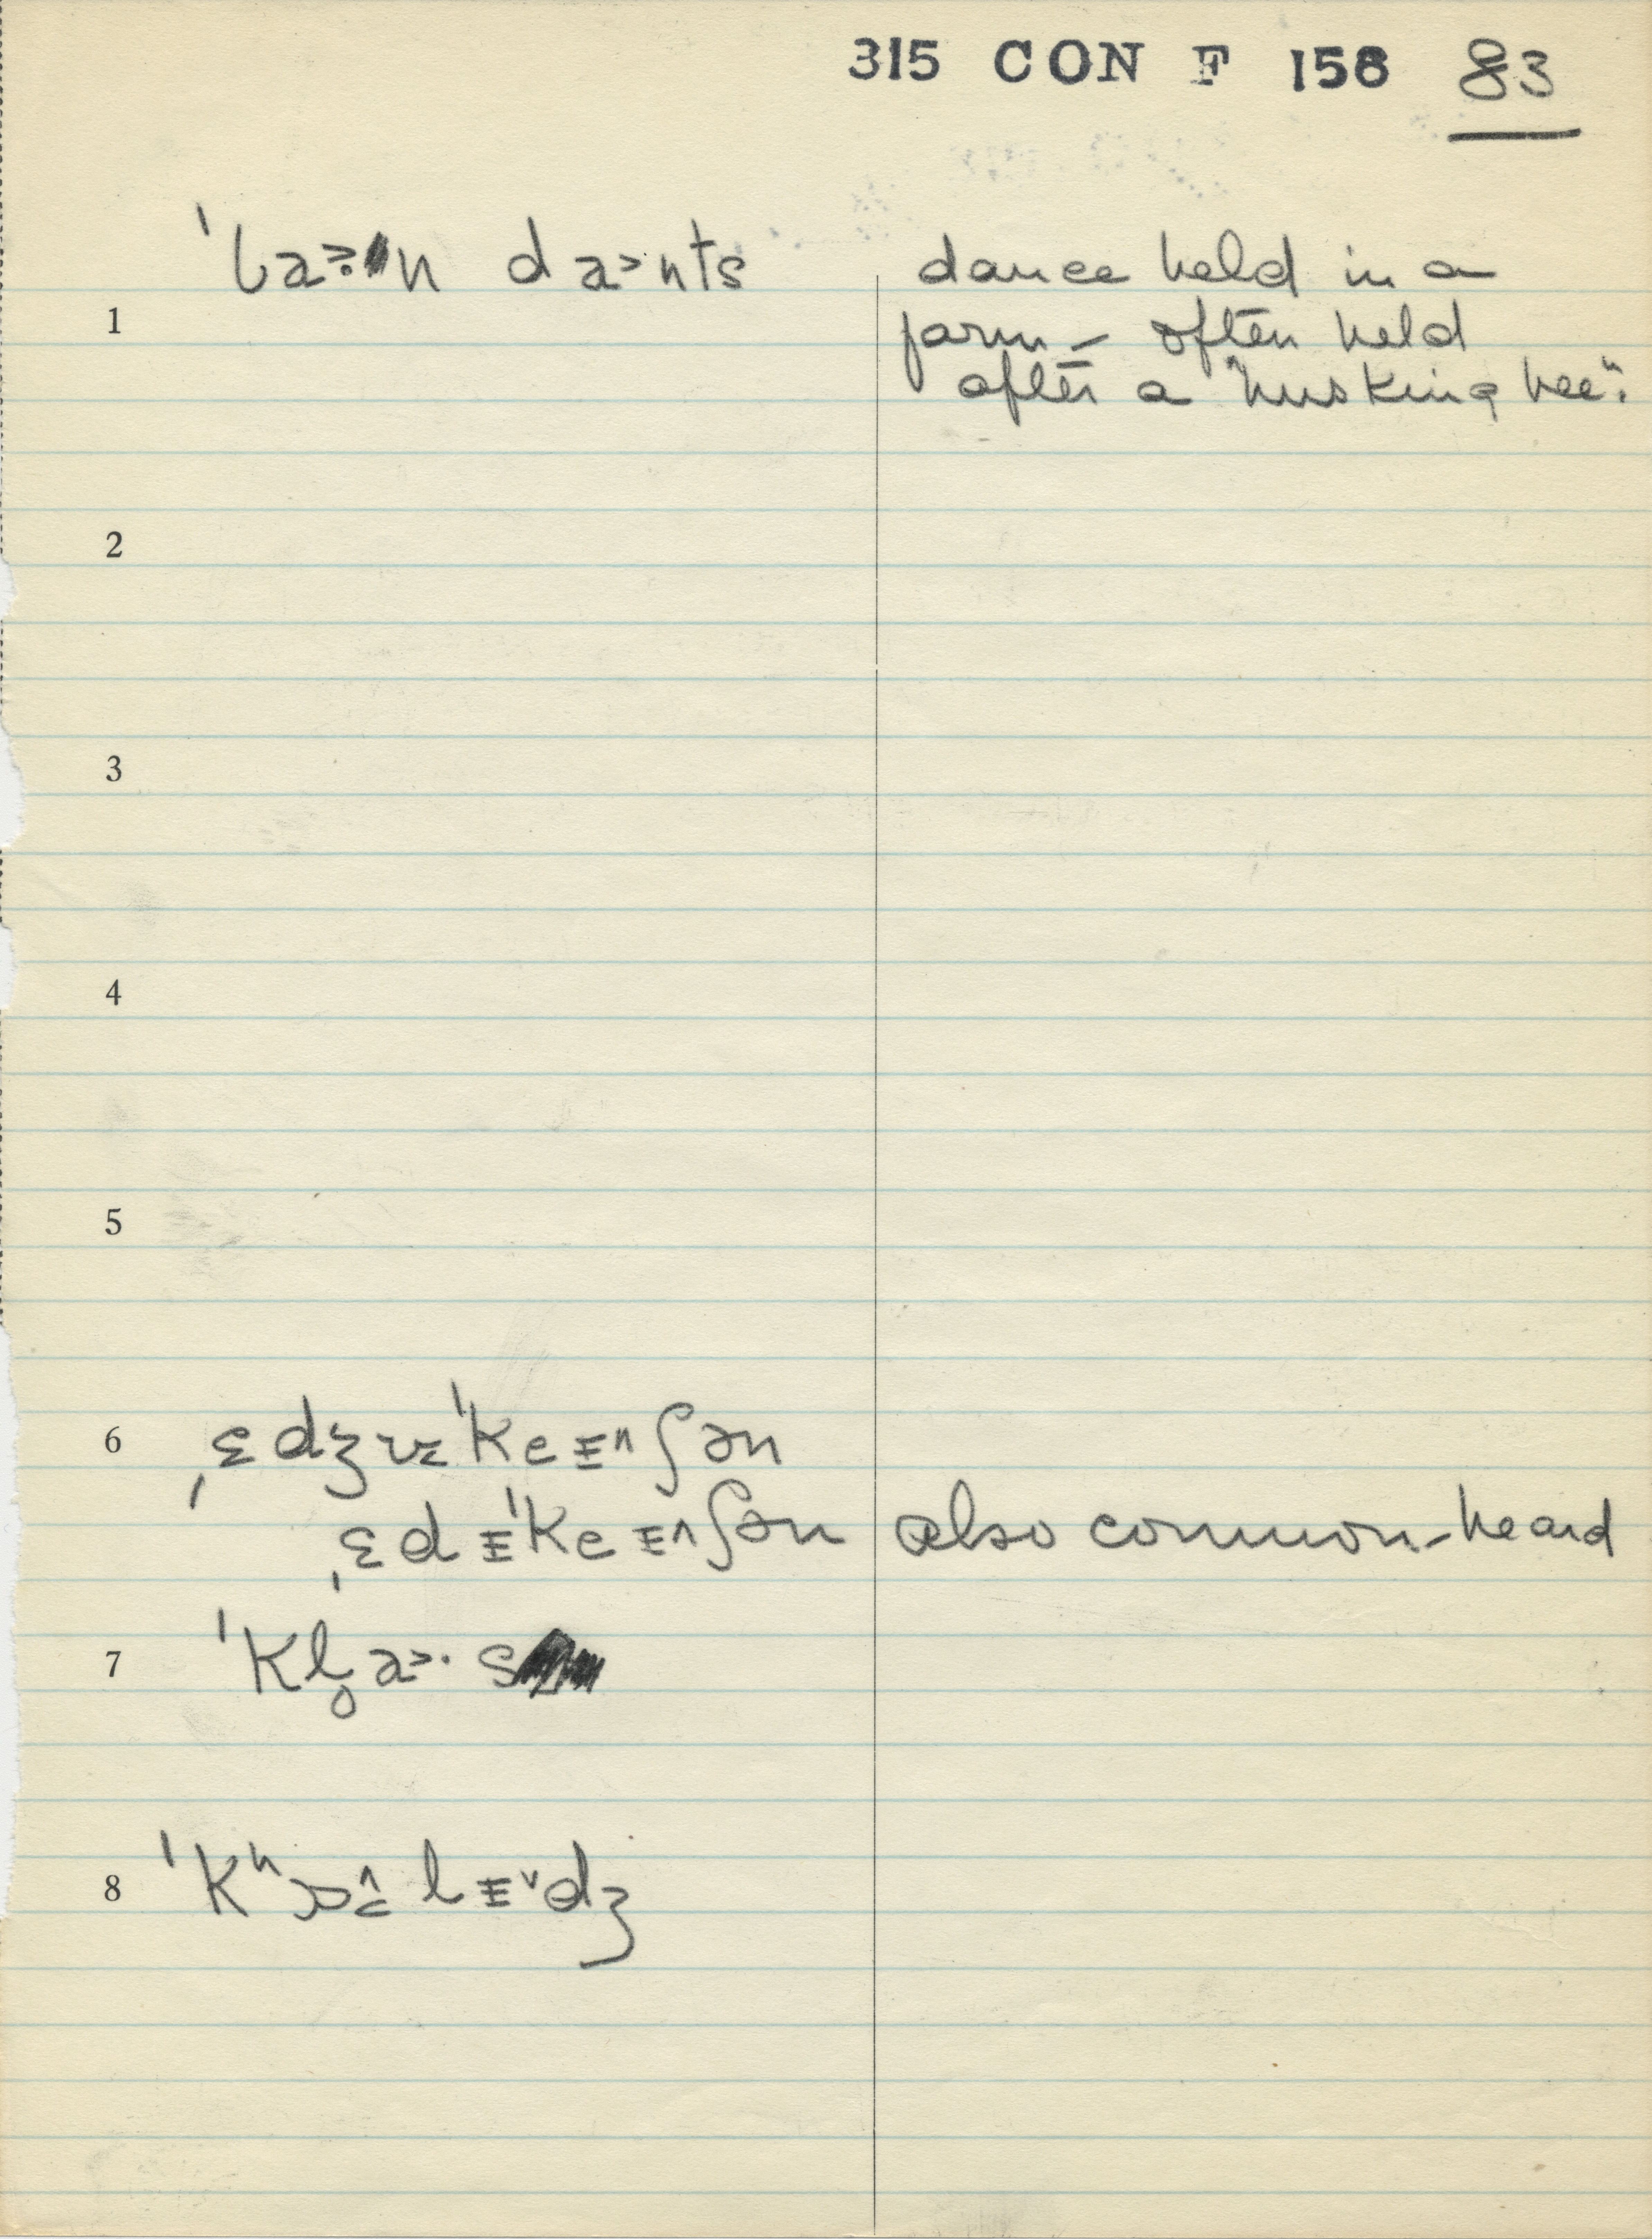 315 CON F 158 83
ˈba˃·n da˃nts dance held in a
1
farm – often held
after a "husking bee".
2
3
4
5
6 ˌɛdʒʊɪˈkeɪ^ʃən
ˌɛdɪˈkeɪ^ʃən also common – heard
7 ˈkl̥a˃·s
8 ˈkʰɒ^lɪ˅dʒ